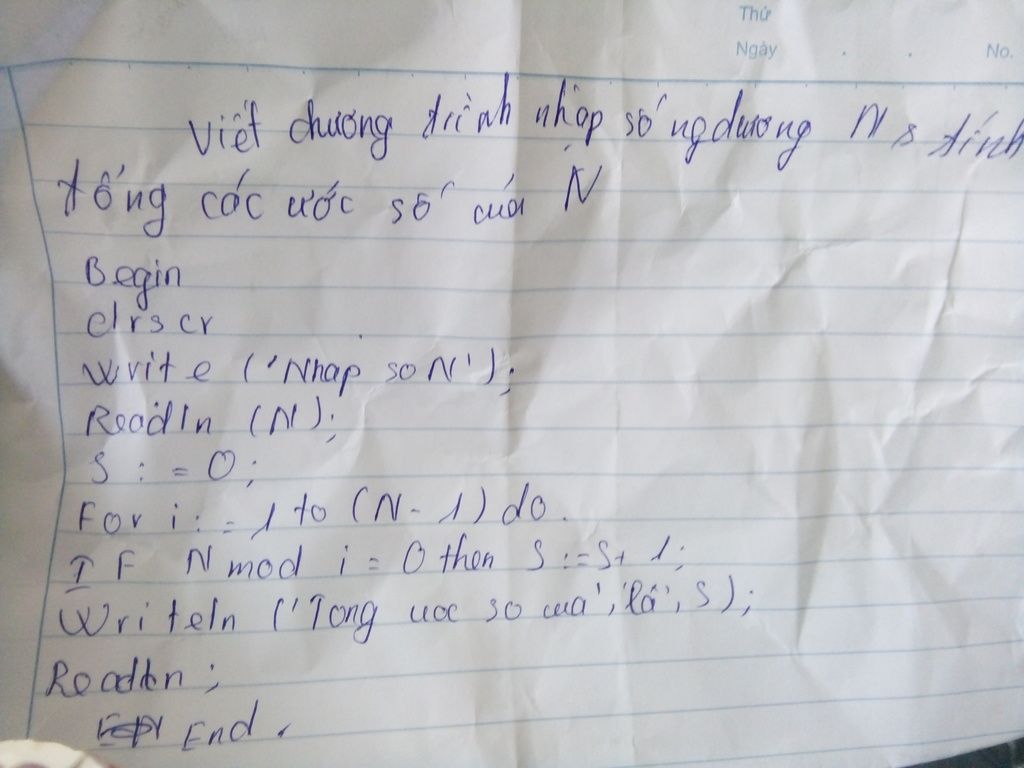 Thứ
Ngày . . No.
Viết chương trình nhập số ngdương N & tính
tổng các ước số của N
Begin
Clrscr
Write ('Nhap so N');
Readln (N);
S := 0;
For i := 1 to (N - 1) do.
IF N mod i = 0 then S := S + 1;
Writeln ('Tong uoc so cua', 'là', S);
Readln ;
End.